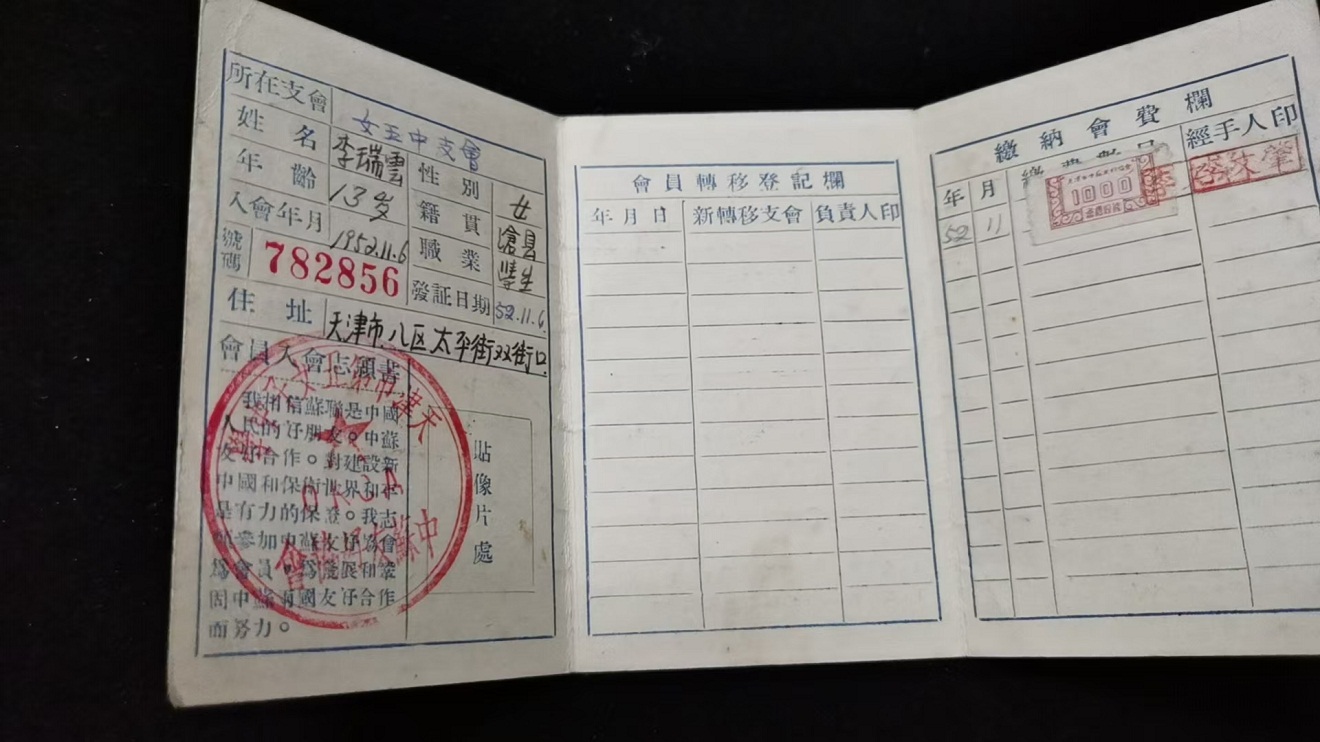 所在支會 女五中支會
姓名 李瑞雲 性別 女
年齡 13岁 籍貫 滄县
入會年月 1952.11.6 職業 學生
號碼 782856 發証日期 52.11.6
住址 天津市八区太平街双街口
會員入會志願書
我相信蘇聯是中國
人民的好朋友。中蘇
友好合作。對建設新
中國和保衛世界和平
是有力的保證。我志
願參加中蘇友好協會
爲會員。爲發展和鞏
固中蘇兩國友好合作
而努力。
貼像片處
天津市
中蘇友好協會
會員轉移登記欄
年月日 新轉移支會 負責人印
繳納會費欄
年 月 經手人印
52 11
1000